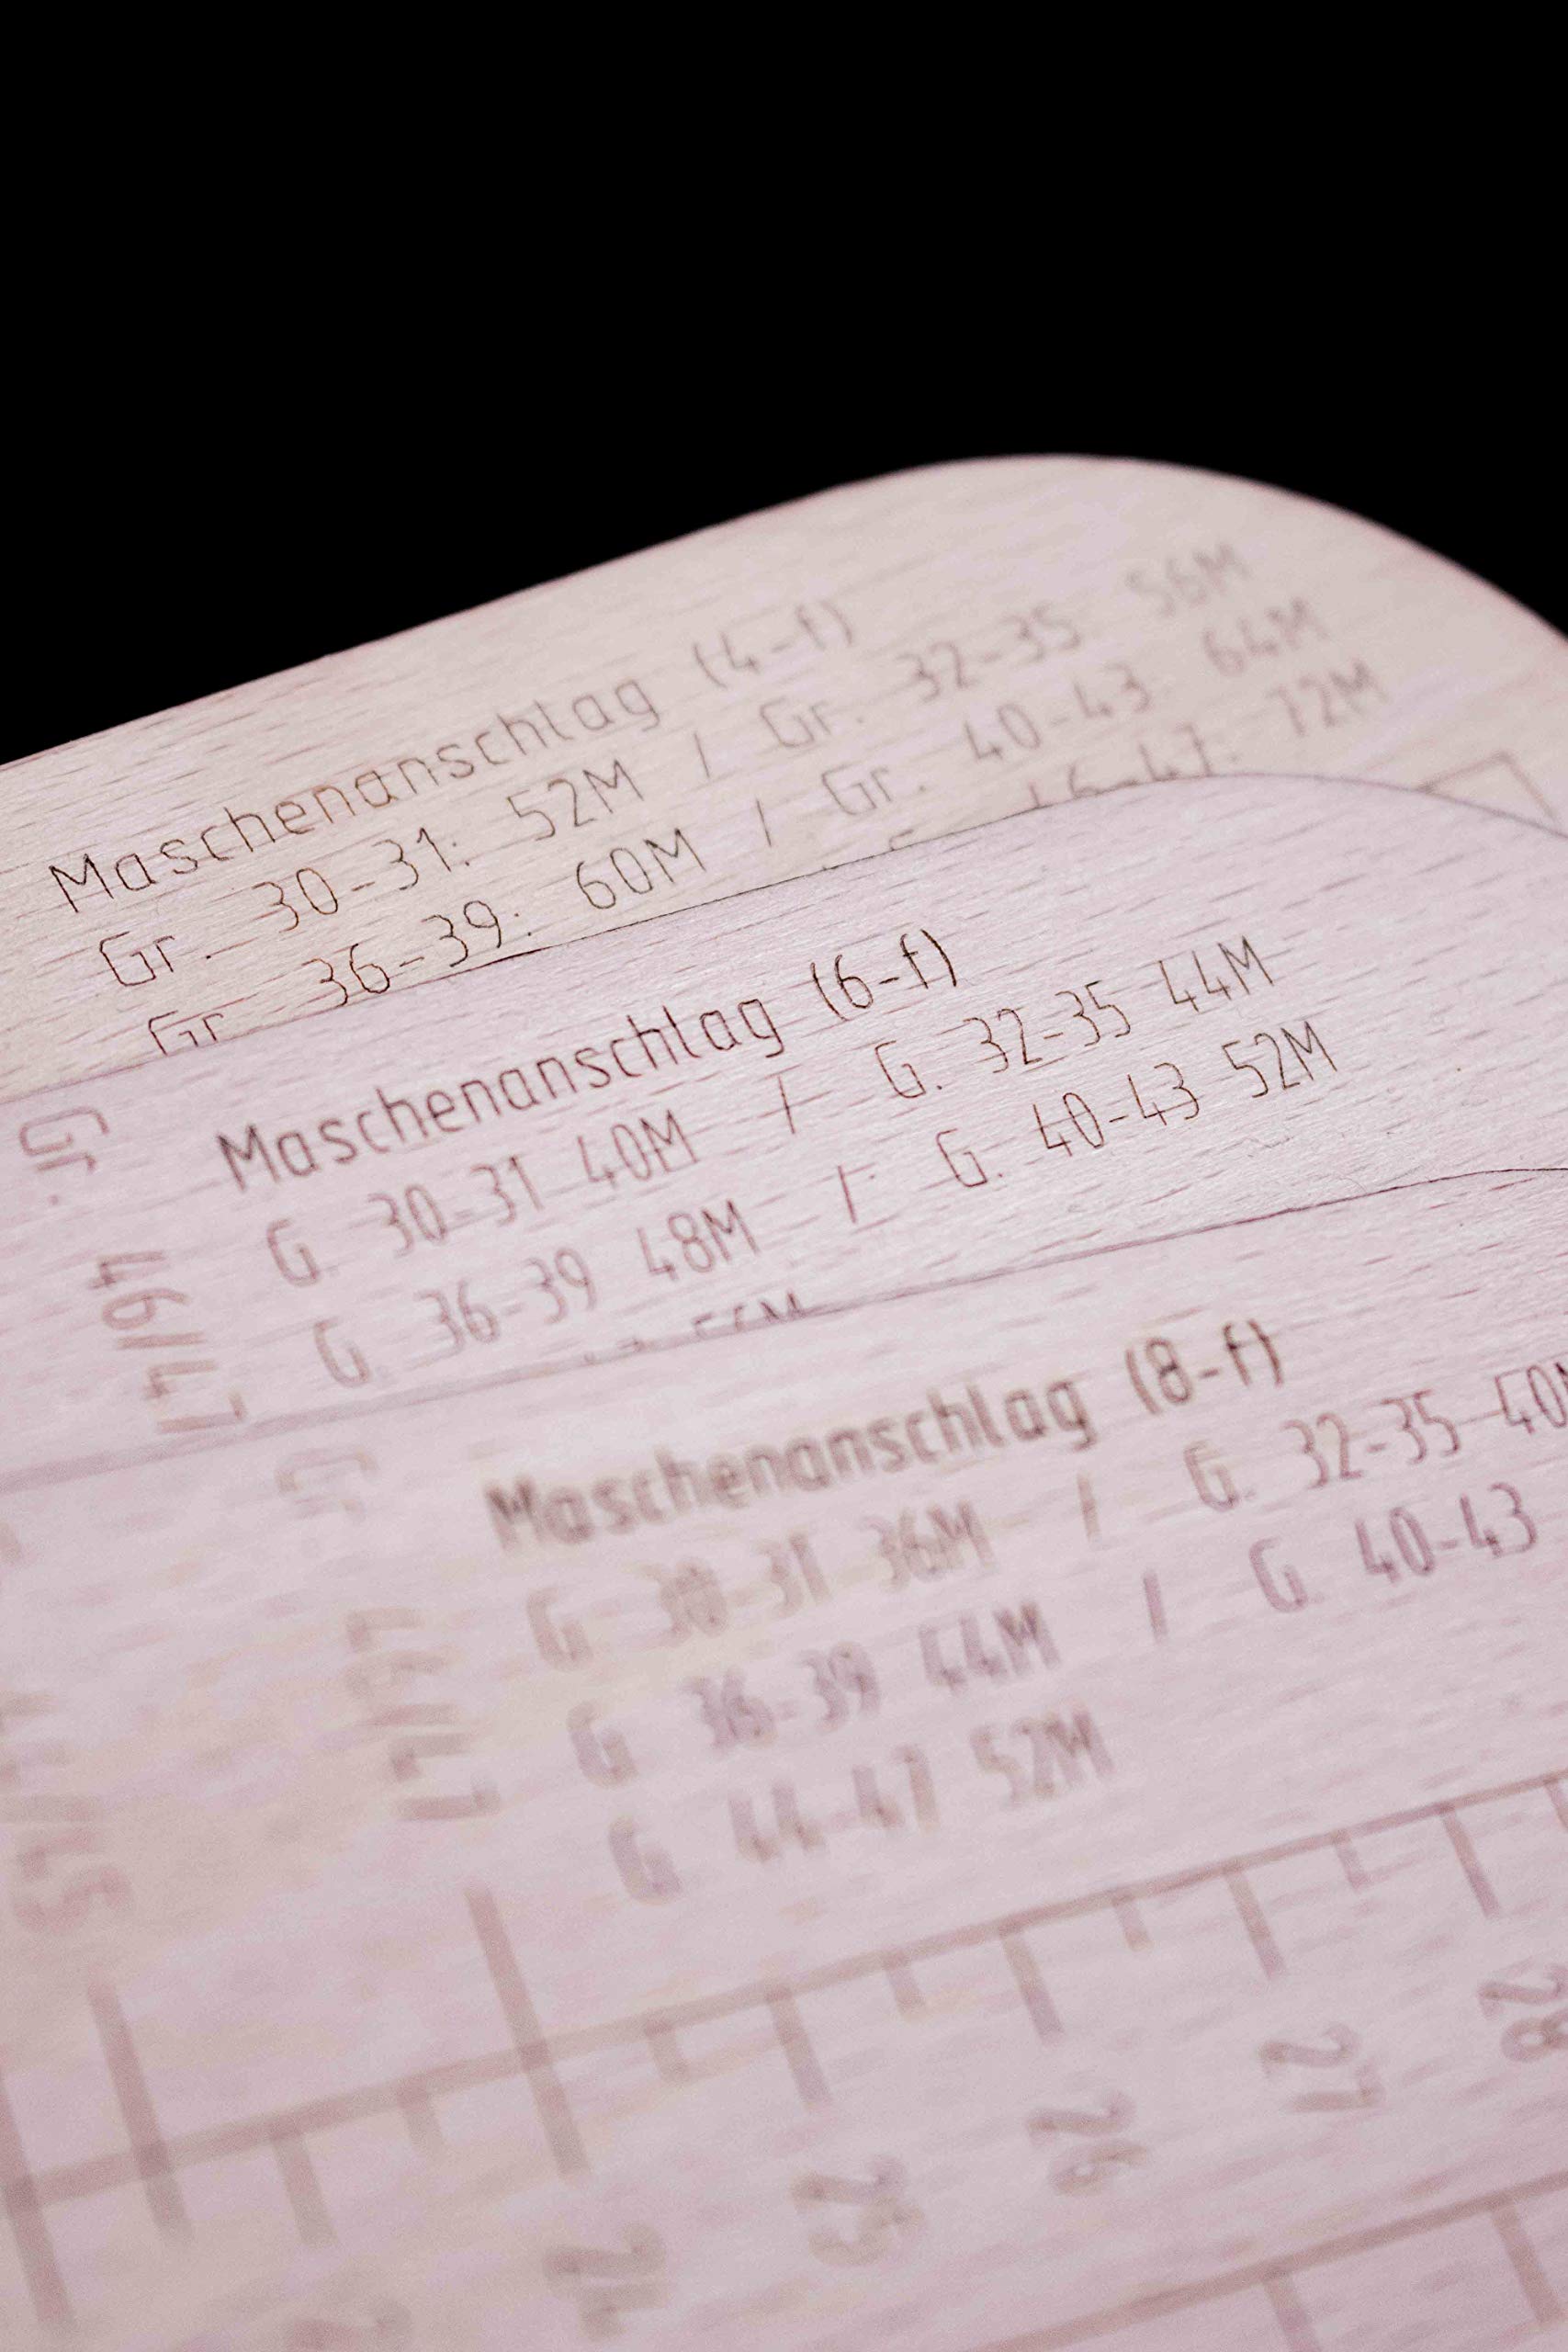 Maschenanschlag (4-f)
Gr. 30-31: 52M / Gr. 32-35 56M
Gr. 36-39: 60M / Gr. 40-43 64M
46-47: 72M
Gr.
46/47
Maschenanschlag (6-f)
G. 30-31 40M / G. 32-35 44M
G. 36-39 48M / G. 40-43 52M
56M
Gr.
46/47
Maschenanschlag (8-f)
G 30-31 36M / G. 32-35 40M
G 36-39 44M / G. 40-43
G 44-47 52M
24
25
26
27
28